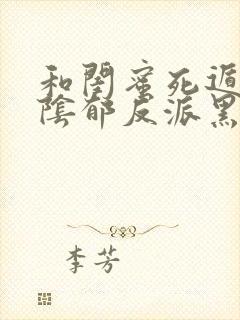 和閨蜜死遁
陰郁反派黑
李芳